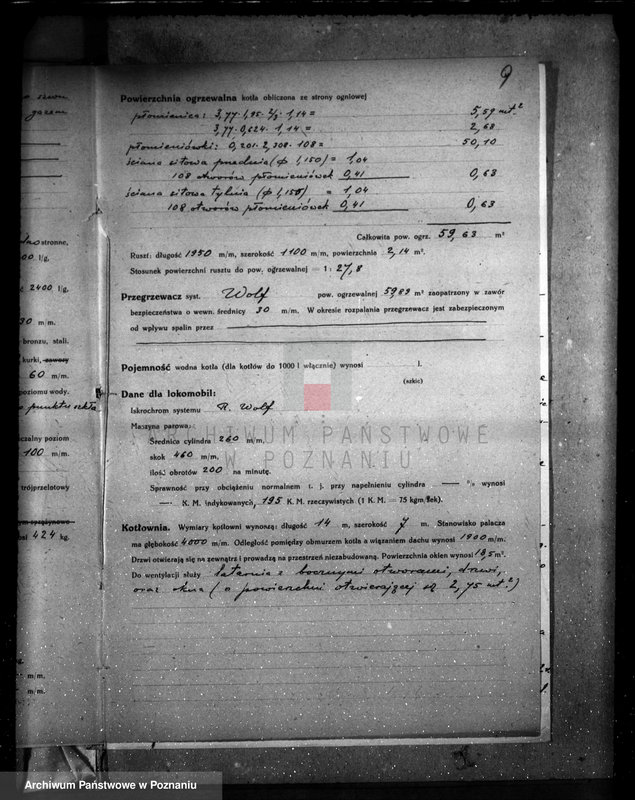 9
Powierzchnia ogrzewalna kotła obliczona ze strony ogniowej
płomienica: 3,77 · 1,95 · 2/3 · 1,14 = 5,59 mt.²
3,77 · 0,624 · 1,14 = 2,68
płomieniówki: 0,201 · 2,308 · 108 = 50,10
ściana sitowa przednia (φ 1,150) = 1,04
108 otworów płomieniówek 0,41 0,63
ściana sitowa tylnia (φ 1,150) = 1,04
108 otworów płomieniówek 0,41 0,63
Całkowita pow. ogrz. 59,63 m²
Ruszt: długość 1950 m/m, szerokość 1100 m/m, powierzchnia 2,14 m².
Stosunek powierzchni rusztu do pow. ogrzewalnej = 1 : 27,8
Przegrzewacz syst. Wolf pow. ogrzewalnej 59,89 m² zaopatrzony w zawór
bezpieczeństwa o wewn. średnicy 30 m/m. W okresie rozpalania przegrzewacz jest zabezpieczonym
od wpływu spalin przez
Pojemność wodna kotła (dla kotłów do 1000 l włącznie) wynosi l.
(szkic)
Dane dla lokomobil:
Iskrochrom systemu R. Wolf
Maszyna parowa:
Średnica cylindra 260 m/m,
skok 460 m/m,
ilość obrotów 200 na minutę.
Sprawność przy obciążeniu normalnem t. j. przy napełnieniu cylindra — % wynosi
— K. M. indykowanych, 195 K. M. rzeczywistych (1 K. M. = 75 kgm/sek).
Kotłownia. Wymiary kotłowni wynoszą: długość 14 m, szerokość 7 m. Stanowisko palacza
ma głębokość 4000 m/m. Odległość pomiędzy obmurzem kotła a wiązaniem dachu wynosi 1900 m/m.
Drzwi otwierają się na zewnątrz i prowadzą na przestrzeń niezabudowaną. Powierzchnia okien wynosi 18,5 m².
Do wentylacji służy latarnia z bocznymi otworami, drzwi,
oraz okna (o powierzchni otwierającej się 2,75 mt.²)
gazem
stronne,
00 l/g,
2400 l/g,
30 m/m.
bronzu, stali.
kurki, zawory
60 m/m.
poziomu wody.
punktu szkła
poziom
100 m/m.
trójprzelotowy
424 kg.
m/m.
m/m.
ARCHIWUM PAŃSTWOWE
W POZNANIU
Archiwum Państwowe w Poznaniu